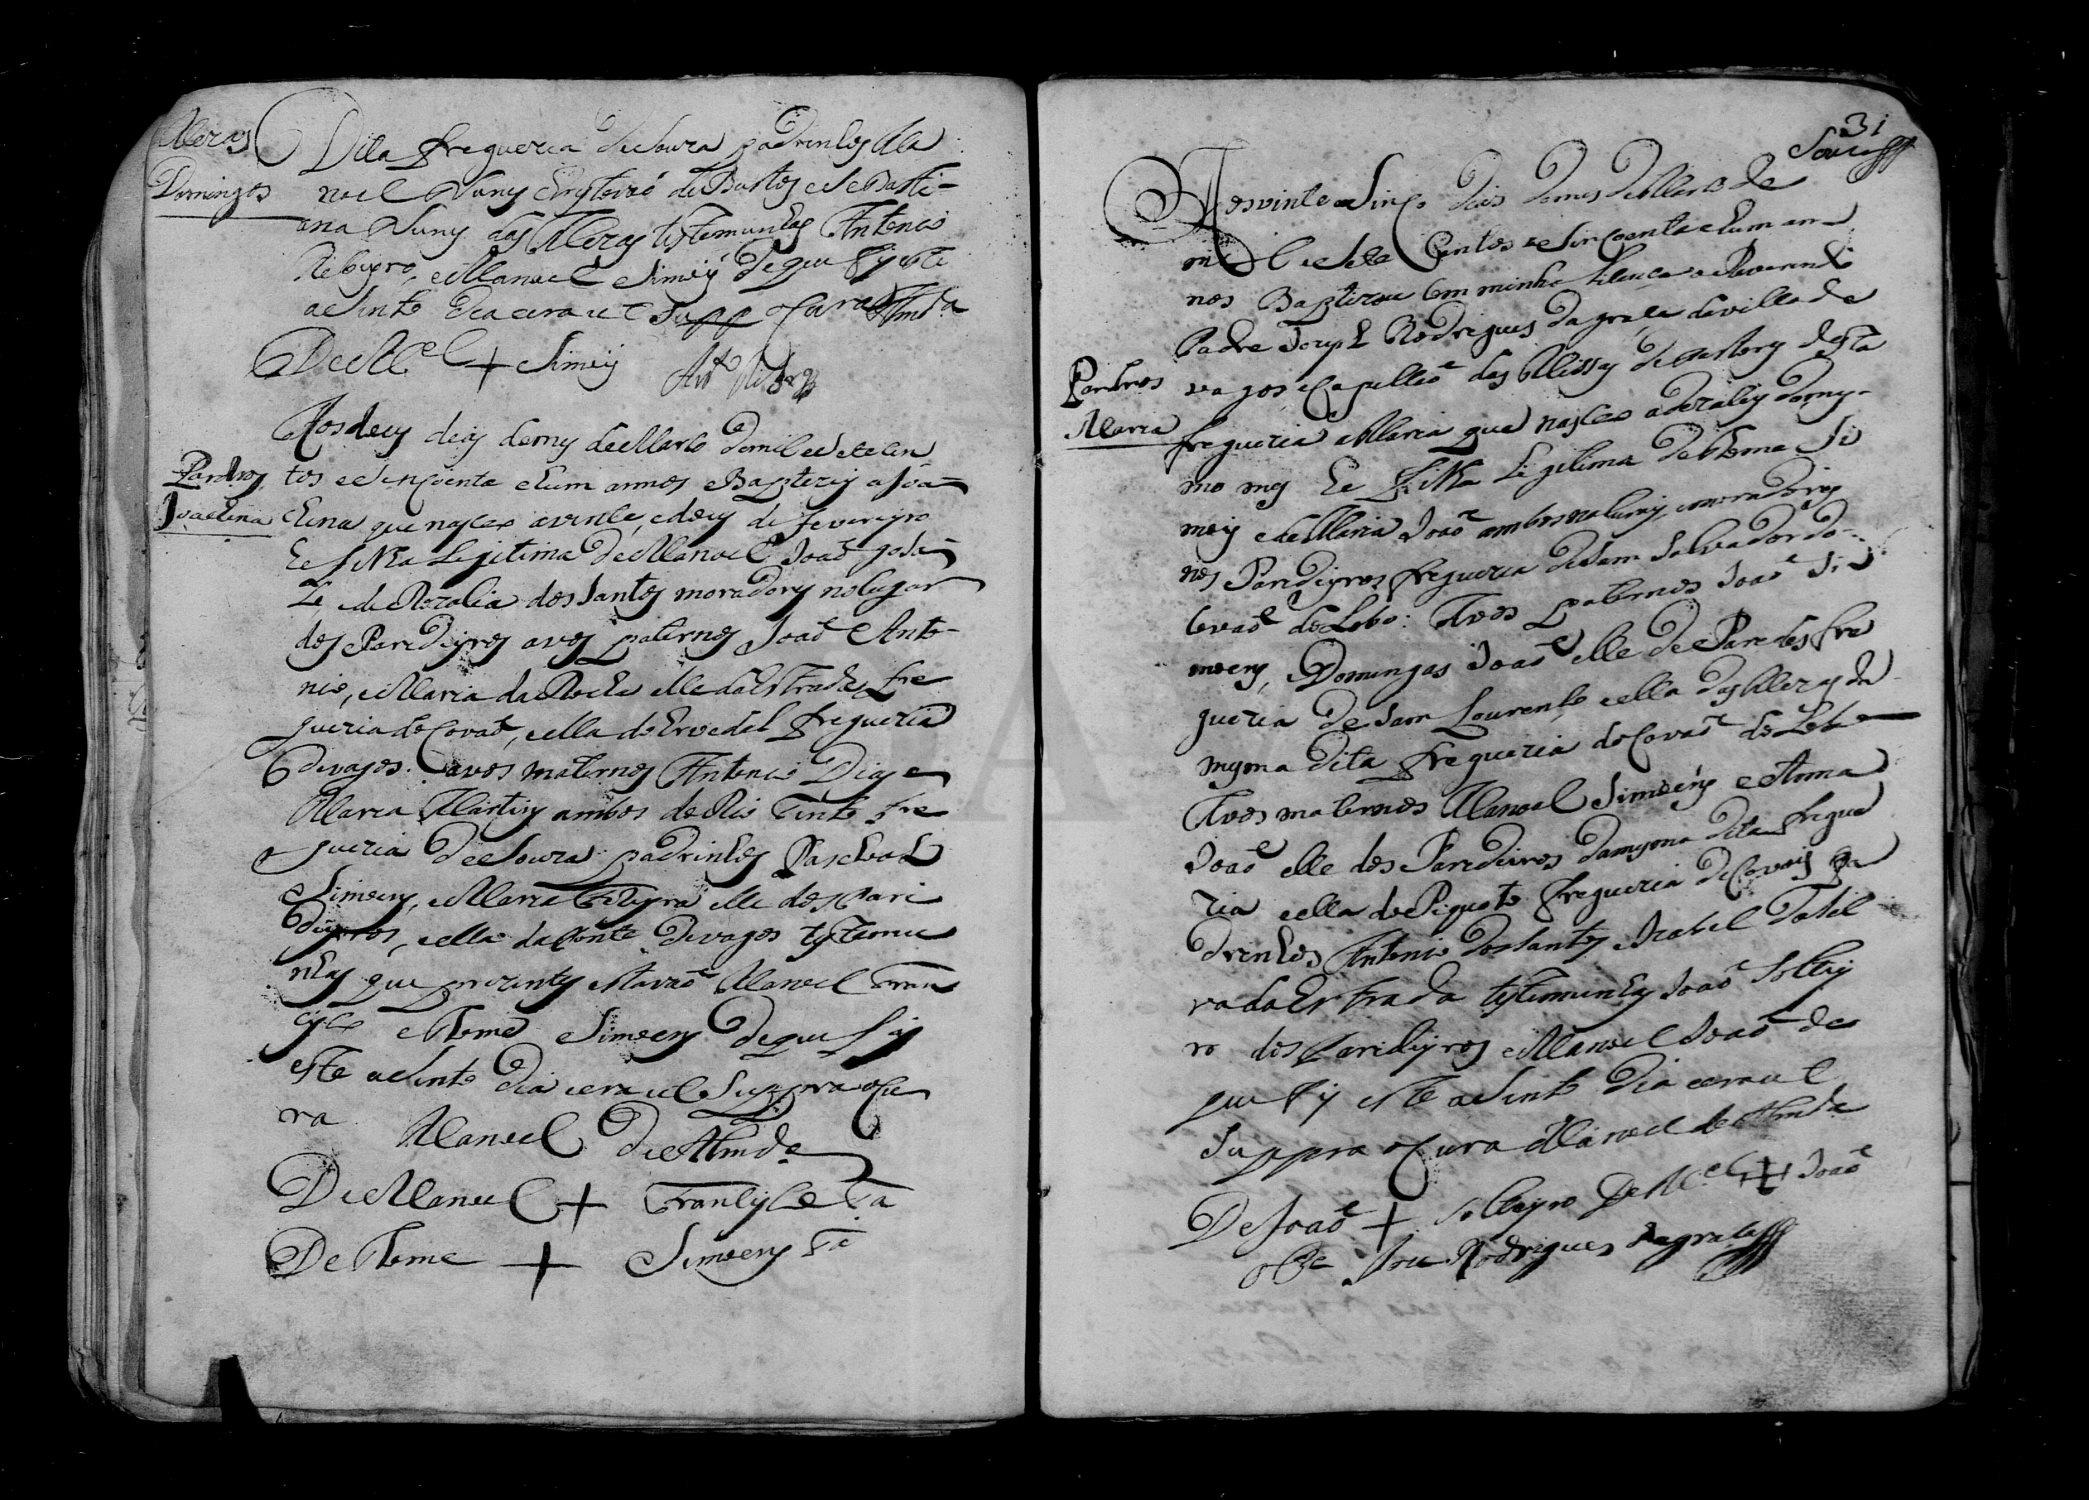 Meras
Domingos
Dita fregueria de Soura padrinhos Ma
noel Nunes de Bustos e Sebasti-
ana Nunes das Meras testemunhas Antonio
Ribeyro, e Manoel Simois de que fis este
asento dia era ut supp o Cura Almda
De Mel + Simois Anto Ribro
Aos deis deis do mes de Marco de mil e sete cen
Pardros
Joachina
tos e sincoenta e hum annos Baptizei a Joa
china que nasceo a vinte, e dois de Fevereyro
he filha legitima de Manoel Joao
he de Rozalia dos Santos moradores no lugar
dos Pardeyros avos paternos Joao Anto-
nio, e Maria da Rocha elle da Estrada fre
gueria do Covaõ, e ella do Ervedal fregueria
de vagos. avos maternos Antonio Dias e
Maria Martins ambos de Rio Tinto fre
gueria de Soura padrinhos Paschoal
Simois, e Maria elle dos Pare
deyros, e ella da fonte de vagos testemu
nhas que prezentes estavaõ Manoel Fran
cisco e Thome Simoens de que fis
este asento dia era ut suppra o Cu
ra Manoel de Almda
De Manoel + Francisco ta
De Thome + Simoens ta
31
Aos vinte e sinco dias do mes de Marco de
mil e sete centos e sincoenta e hum an
nos Baptizou com minha licenca o Reverendo
Padre Joseph Rodrigues da graça da villa de
Pardros
Maria
vagos Capellaõ das Missas de desta
fregueria a Maria que nasceo a do mes-
mo mes he filha legitima de Thome Si
mois e de Maria Joaõ ambos naturais, moradores
nos Paredeyros fregueria de Sam Salvador do
Covaõ do Lobo: Avos paternos Joaõ Si
moens, Domingas Joaõ elle de Paredes fre
gueria de Sam Lourenço e ella das Meras da
mesma dita fregueria do Covaõ do Lobo
Avos maternos Manoel Simoens e Anna
Joaõ elle dos Paredeiros da mesma dita fregue
ria e ella do Pigoto fregueria de Covois Pa
drinhos Antonio dos Santos Izabel
va da Estrada testemunhas Joaõ Soltey
ro dos Paredeyros e Manoel Joaõ de
que fis este asento dia era ut
suppra o Cura Manoel de Almda
De Joaõ + Solteyro De Mel + Joaõ
o Pe Joze Rodrigues da graça